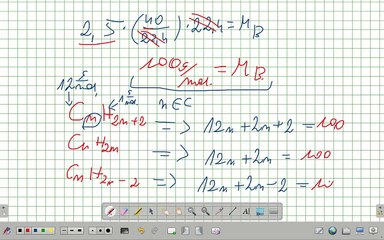 2,5 · (40/22,4) · 22,4 = M_B
100 g/mol = M_B
12 g/mol 1 g/mol n∈C
CnH2n+2 => 12n + 2n + 2 = 100
CnH2n => 12n + 2n = 100
CnH2n-2 => 12n + 2n - 2 = 10